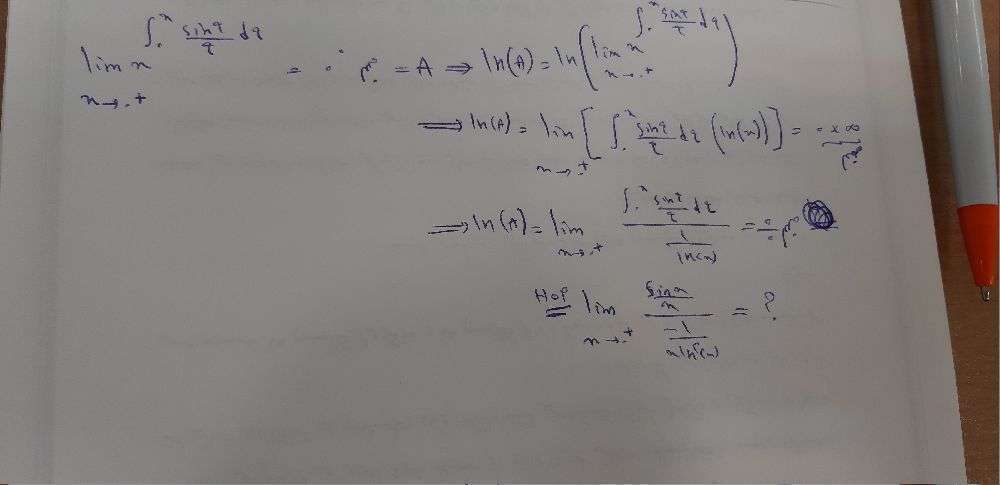 lim x→۰⁺ x^(∫۰ˣ sin t/t dt) = ۰^۰ = A ⟹ ln(A) = ln(lim x→۰⁺ x^(∫۰ˣ sin t/t dt))
⟹ ln(A) = lim x→۰⁺ [∫۰ˣ sin t/t dt (ln(x))] = ۰×∞
⟹ ln(A) = lim x→۰⁺ (∫۰ˣ sin t/t dt)/(1/ln(x)) = ۰/۰
Hop= lim x→۰⁺ (sin x/x)/(-1/(x ln²(x))) = ?